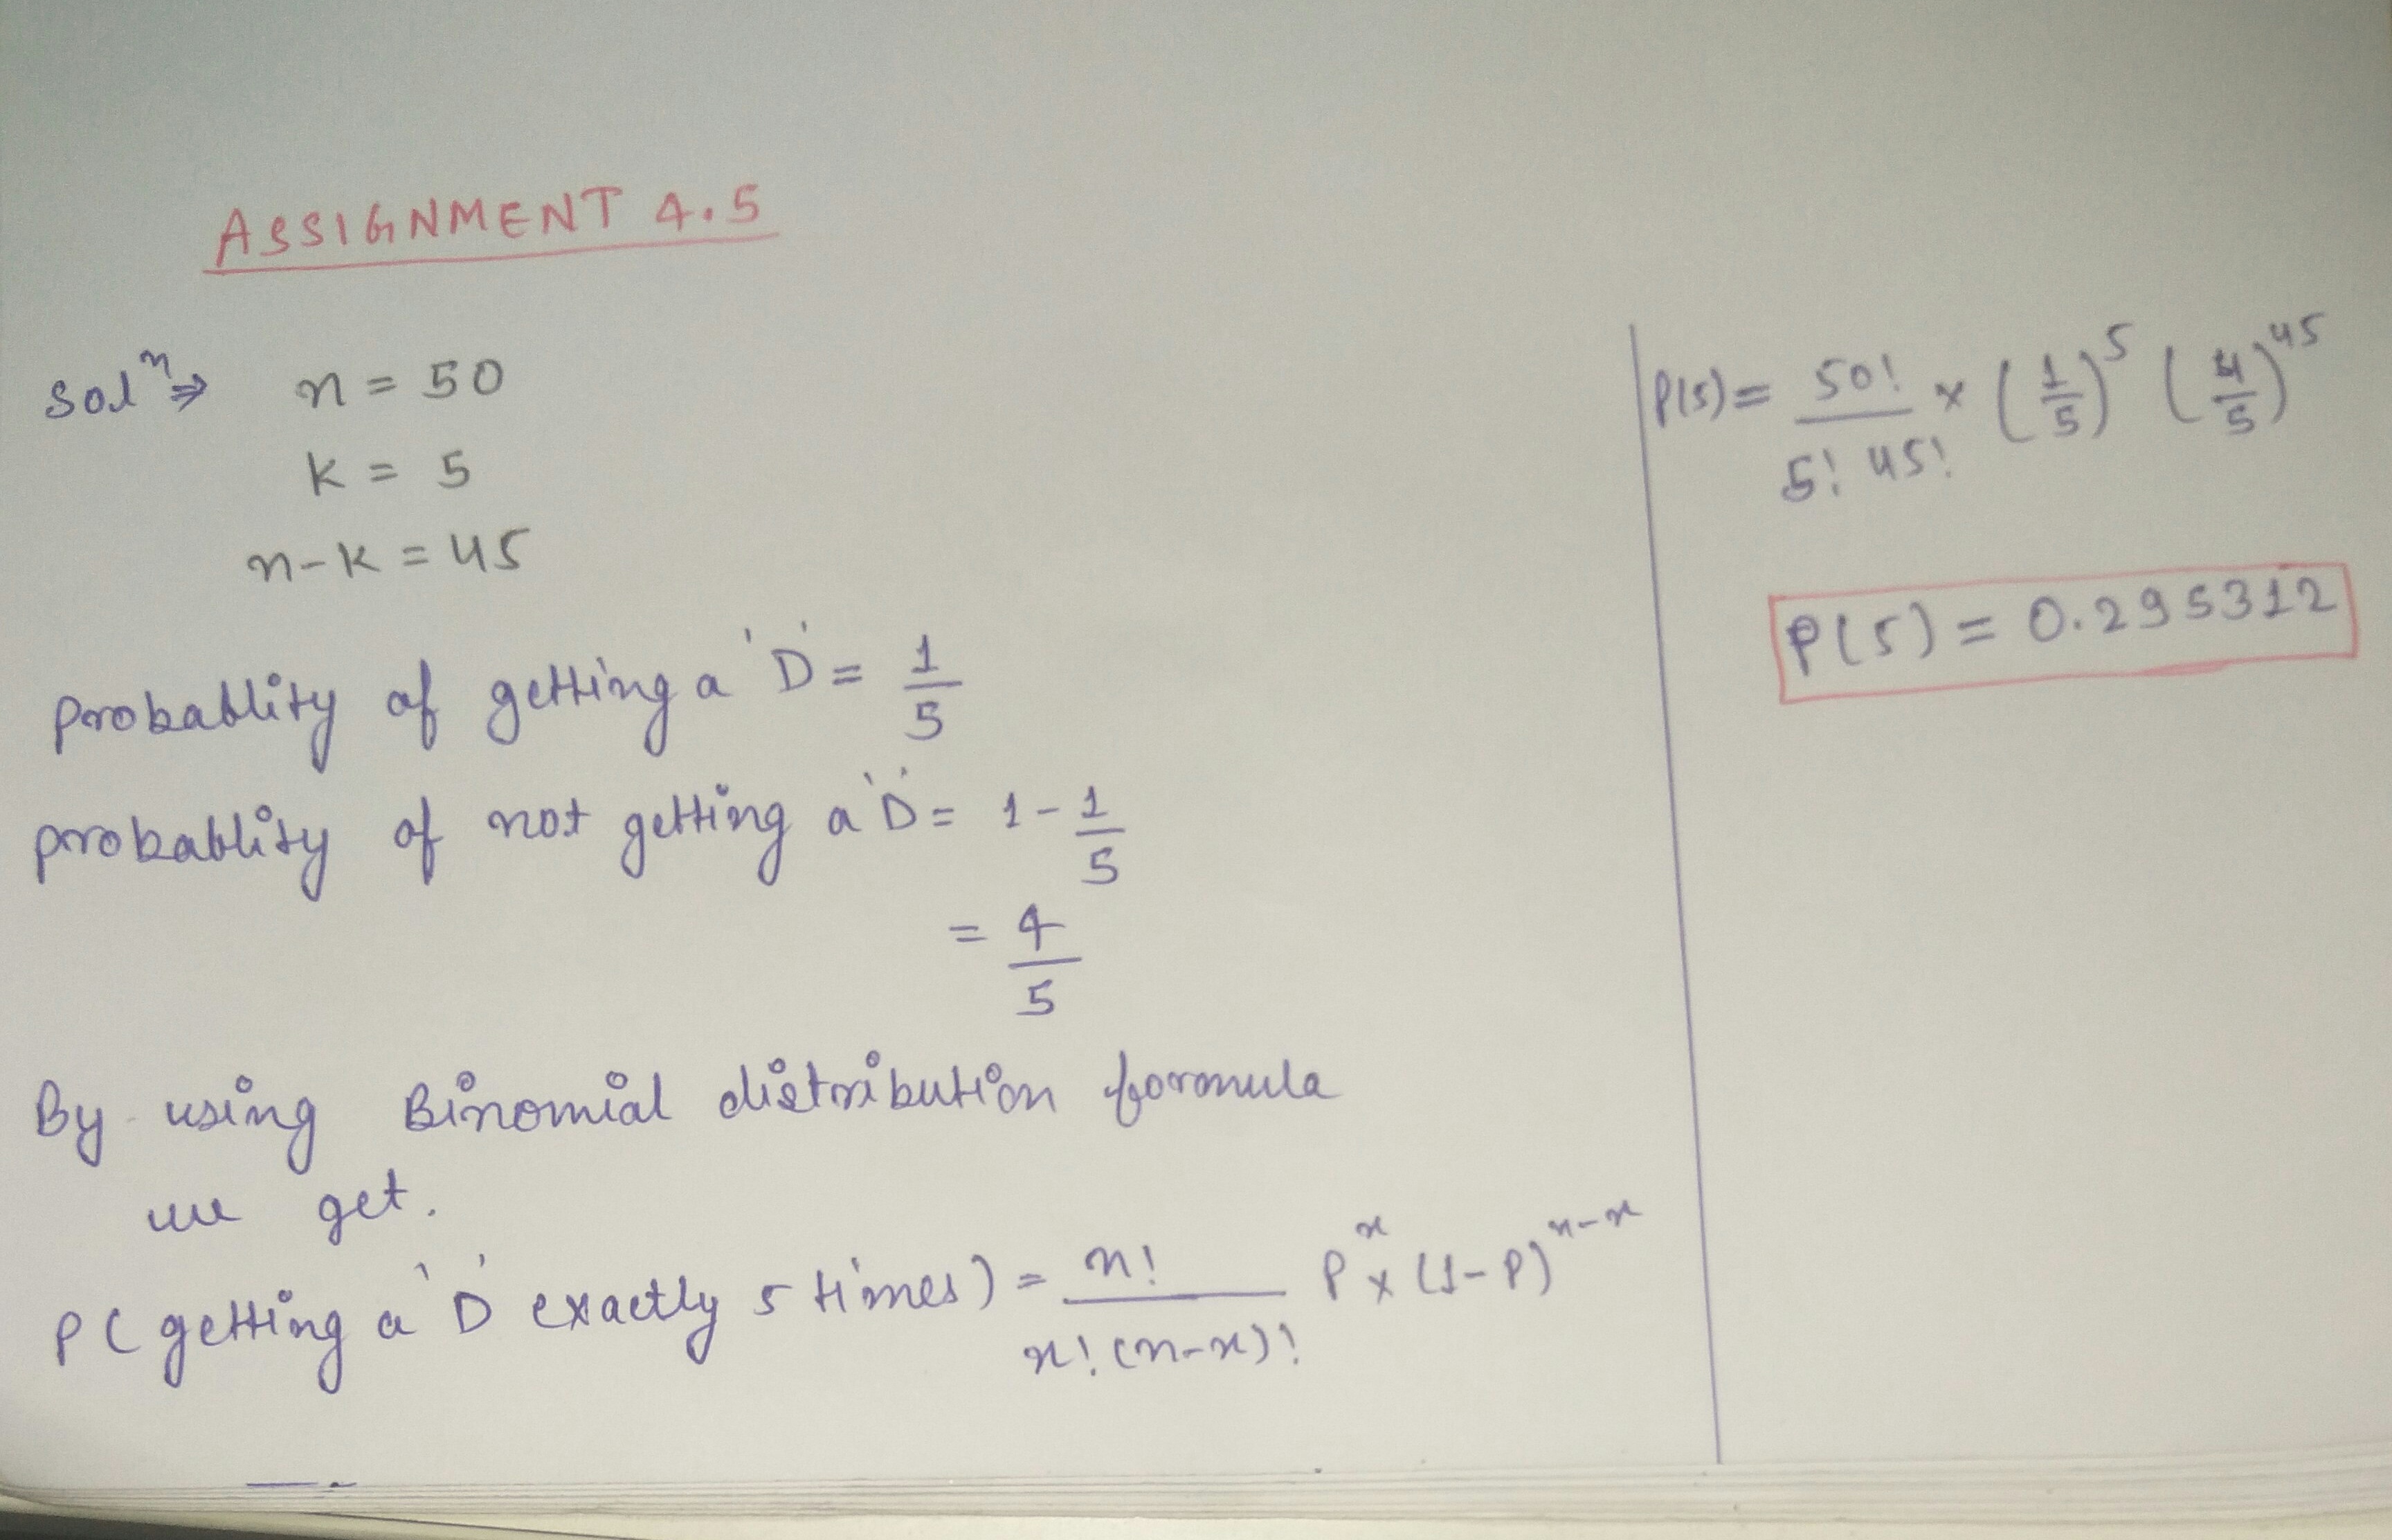 ASSIGNMENT 4.5
Solⁿ⇒ n = 50
K = 5
n-K = 45
probablity of getting a 'D' = 1/5
probablity of not getting a 'D' = 1 - 1/5
= 4/5
By using Binomial distribution formula
we get.
P( getting a 'D' exactly 5 times) = n!/x!(n-x)! P^x × (1-P)^n-x
P(5) = 50!/5! 45! × (1/5)^5 (4/5)^45
P(5) = 0.295312